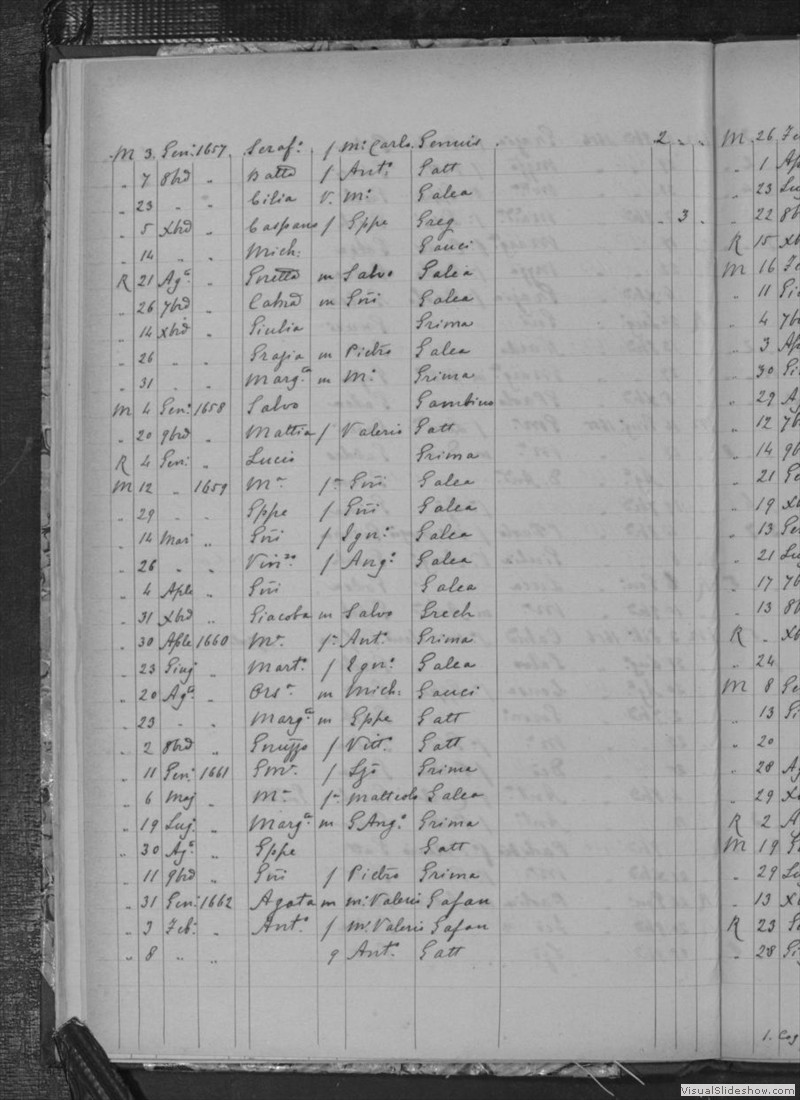 M 3 Gen: 1657. Seraf: f Mo: Carlo Gennis 2 . .
" 7 8bre " Batta f Anto: Gatt
" 23 " " Cilia V. Mo: Galea
" 5 Xbre " Gaspano f Gppe Greg . 3 .
" 14 " " Mich: Gauci
R 21 Aga: " Gretta m Salvo Galea
" 26 7bre " Catna m Gni Galea
" 14 Xbre " Giulia Grima
" 26 " " Grazia m Pietro Galea
" 31 " " Margta m Mo: Grima
M 4 Gen: 1658 Salvo Gambino
" 20 9bre " Mattia f Valerio Gatt
R 4 Gen: " Lucio Grima
M 12 " 1659 Ma: fa Gni Galea
" 29 " " Gppe f Gni Galea
" 14 Mar " Gni f Igno: Galea
" 26 " " Vinzo: f Ango: Galea
" 4 Aple " Gni Galea
" 31 Xbre " Giacoba m Salvo Grech
" 30 Aple 1660 Ma: fa Anto: Grima
" 23 Giug " Marto: f Igno: Galea
" 20 Aga: " Orsa: m Mich: Gauci
" 23 " " Margta m Gppe Gatt
" 2 8bre " f Vitto: Gatt
" 11 Gen: 1661 f Grima
" 6 Mag " Ma: fa Matteolo Galea
" 19 Lug. " Margta m G Ango: Grima
" 30 Aga: " Gppe Gatt
" 11 9bre " Gni f Pietro Grima
" 31 Gen: 1662 Agata m Mo: Valerio Gafan
" 3 Feb: " Anto: f Mo: Valerio Gafan
" 8 " " 9 Anto: Gatt
M 26 Fe
" 1 Ap
" 23 Lug
" 22 8b
R 15 Xb
M 16 Fe
" 11 Gi
" 4 7b
" 3 Ap
" 30 Gi
" 29 Ag
" 12 7b
" 14 9b
" 21 Ge
" 19 Xb
" 13 Gen
" 21 Lu
" 17 7b
" 13 8b
R " Xb
" 24
M 8 Ge
" 13 Gi
" 20
" 28 Ag
" 29 Xb
R 2 A
M 19 G
" 29 Lu
" 13 X
R 23 S
" 28 Gi
1. Cog
VisualSlideshow.com